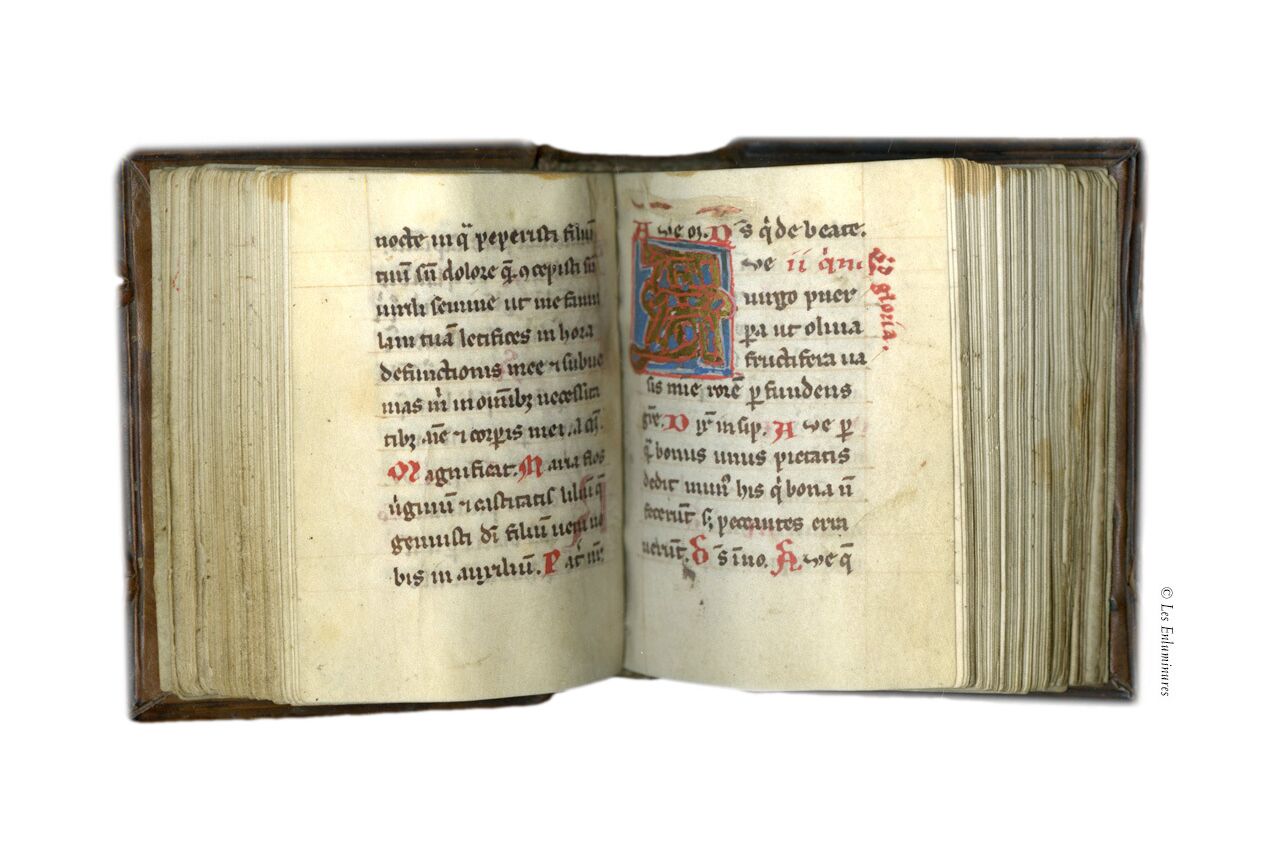 nocte in q̄ peperisti filiū
tuū sn̄ dolore q̄ ꝯcepisti sn̄
uirili semine ut me famu
lam tuā letifices in hora
defunctionis mee ⁊ subue
nias m̄ in omībꝫ necessita
tibꝫ aīe ⁊ corꝑis mei. a
Magnificat. Maria flos
uirginū ⁊ castitatis liliū q̄
genuisti dī filiū ueni no
bis in auxiliū. Pat̄ nr̄
Aue m. Ds̄ q̄ de beate.
Aue ii
uirgo puer
ꝑa ut oliua
fructifera ua
sis mīe rorē ꝑfundens
gr̄e. D ix̄ insip. Aue ꝑ
q̄ bonus unus pietatis
dedit mun⁹ his q̄ bona n̄
fecerūt sꝫ peccantes
uerūt. Ds̄ īuo. Aue q̄
gloria.
© Les Enluminures